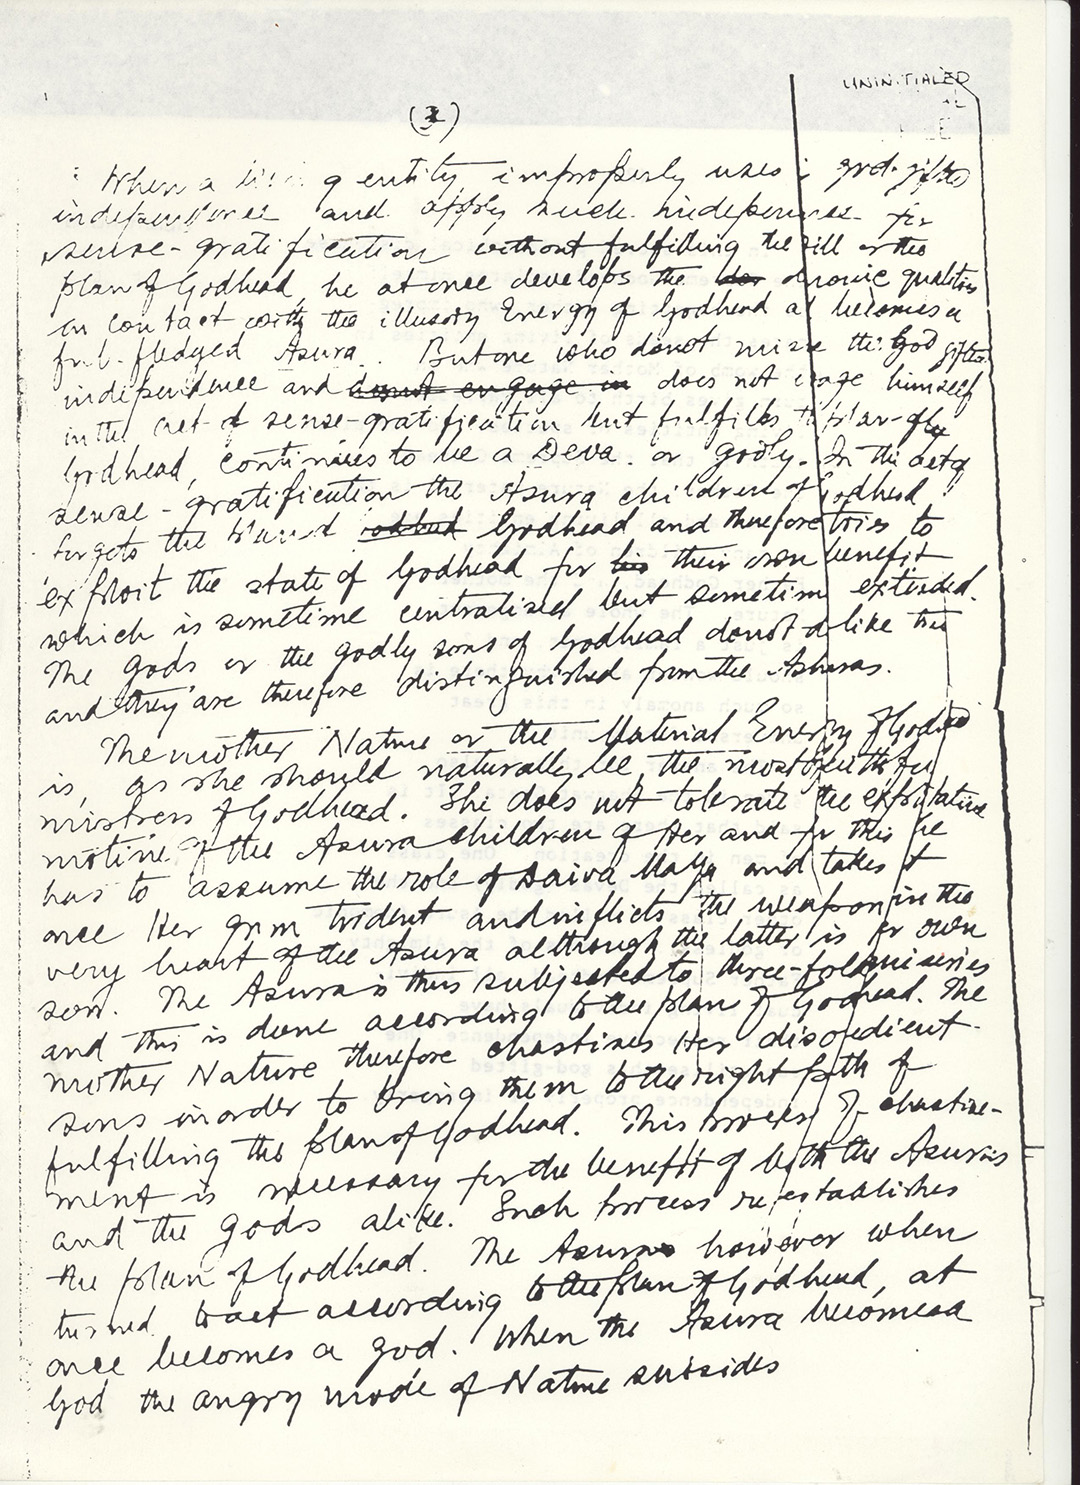 UNINITIALED
(3)
When a g entity improperly uses god-gifted
independence and apply such independence for
sense-gratification without fulfilling the will or the
plan of Godhead, he at once develops the demonic qualities
in contact with the illusory Energy of Godhead becomes a
full-fledged Asura. But one who donot misuse the God gifted
independence and donot engage in does not engage himself
in the act of sense-gratification but fulfills the plan of
Godhead, continues to be a Deva or godly. In the act of
sense-gratification the Asura children of Godhead
forgets the Godhead and therefore tries to
exploit the state of Godhead for his their own benefit
which is sometime centralised but sometime extended.
The gods or the godly sons of Godhead donot like this
and they are therefore distinguished from the Asuras.
The mother Nature or the Material Energy of Godhead
is, as she should naturally be, the most faithful
mistress of Godhead. She does not tolerate the exploitative
motive of the Asura children of Her and for this She
has to assume the role of Daiva Maya and takes at
once Her grim trident and inflicts the weapon in the
very heart of the Asura although the latter is her own
son. The Asura is thus subjected to three-fold miseries
and this is done according to the plan of Godhead. The
mother Nature therefore chastises Her disobedient
sons inorder to bring them to the right path of
fulfilling the plan of Godhead. This process of chastise-
ment is necessary for the benefit of both the Asuras
and the gods alike. Such process re-establishes
the plan of Godhead. The Asuras however when
turned to act according to the plan of Godhead, at
once becomes a god. When the Asura becomes a
God the angry mode of Nature subsides